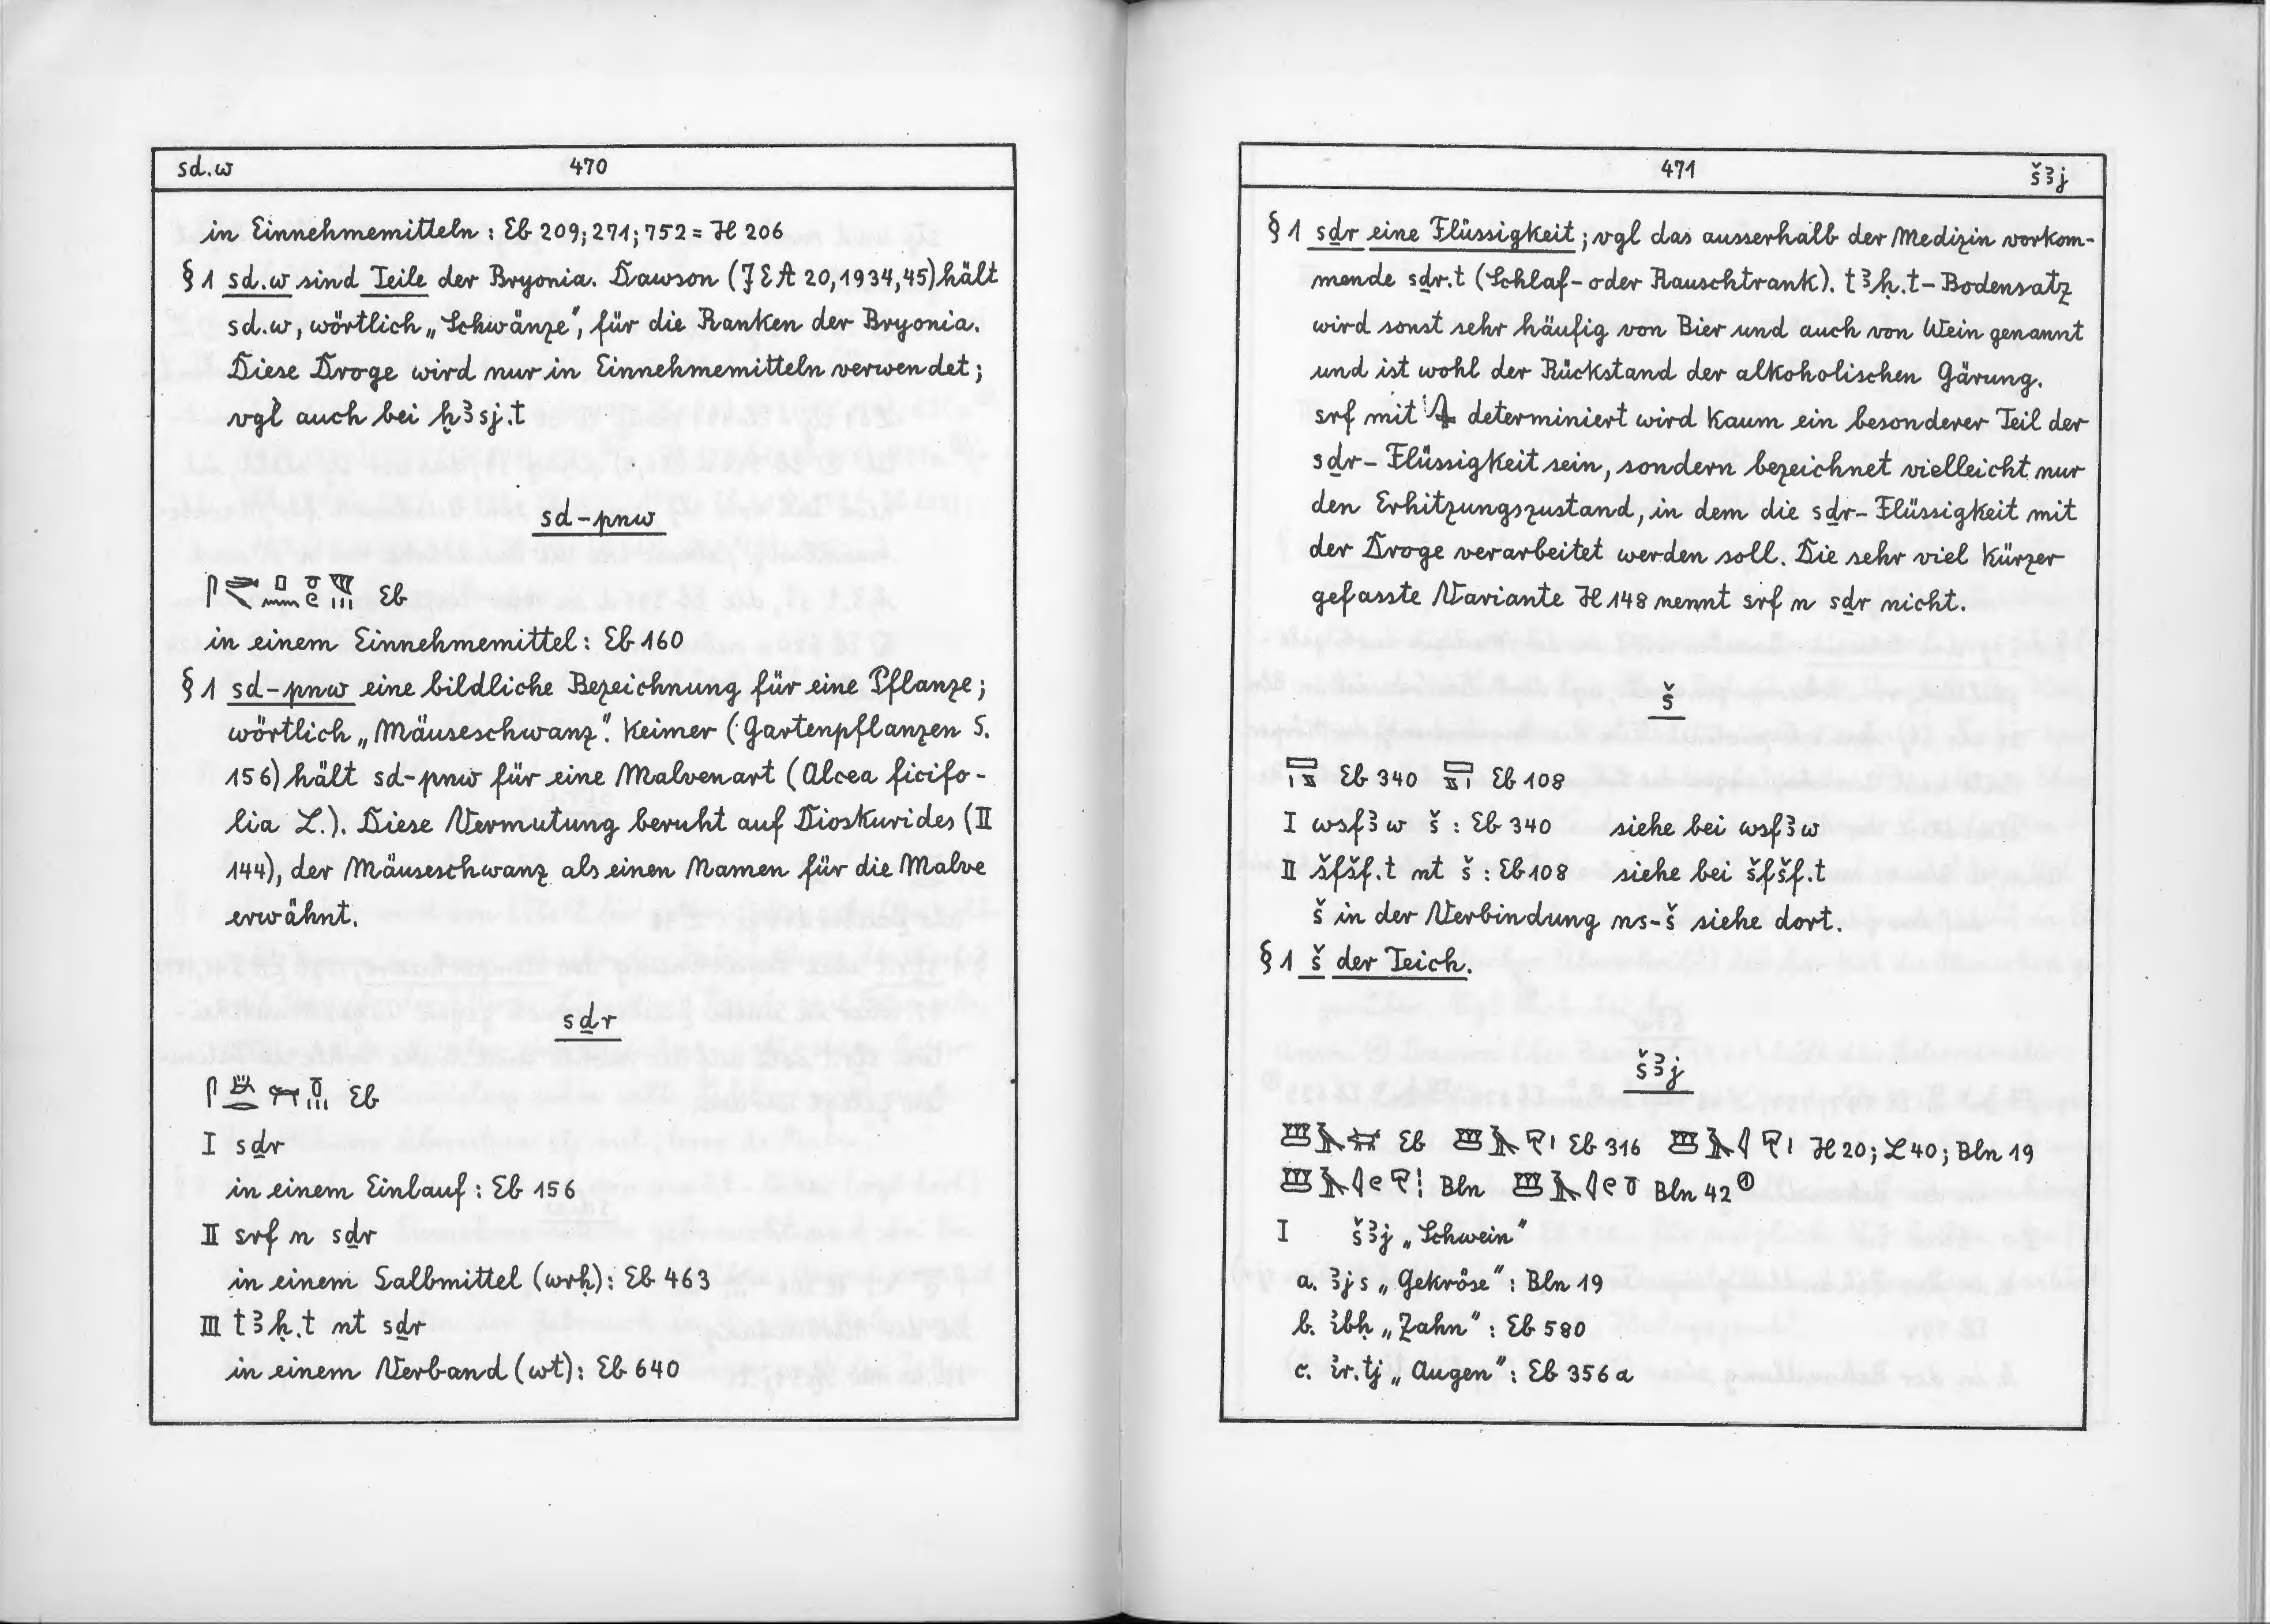 sd.w 470
in Einnehmemitteln : Eb 209; 271; 752 = H 206
§ 1 sd.w sind Teile der Bryonia. Dawson (JEA 20, 1934, 45) hält
sd.w, wörtlich „Schwänze“, für die Ranken der Bryonia.
Diese Droge wird nur in Einnehmemitteln verwendet;
vgl auch bei ḫꜣsj.t
sd-pnw
Eb
in einem Einnehmemittel: Eb 160
§ 1 sd-pnw eine bildliche Bezeichnung für eine Pflanze;
wörtlich „Mäuseschwanz“. Keimer (Gartenpflanzen S.
156) hält sd-pnw für eine Malvenart (Alcea ficifo-
lia L.). Diese Vermutung beruht auf Dioskurides (II
144), der Mäuseschwanz als einen Namen für die Malve
erwähnt.
sḏr
Eb
I sḏr
in einem Einlauf: Eb 156
II srf n sḏr
in einem Salbmittel (wrḥ): Eb 463
III tꜣḥ.t nt sḏr
in einem Verband (wt): Eb 640
471 šꜣj
§ 1 sḏr eine Flüssigkeit; vgl das ausserhalb der Medizin vorkom-
mende sḏr.t (Schlaf- oder Rauschtrank). tꜣḥ.t-Bodensatz
wird sonst sehr häufig von Bier und auch von Wein genannt
und ist wohl der Rückstand der alkoholischen Gärung.
srf mit determiniert wird kaum ein besonderer Teil der
sḏr-Flüssigkeit sein, sondern bezeichnet vielleicht nur
den Erhitzungszustand, in dem die sḏr-Flüssigkeit mit
der Droge verarbeitet werden soll. Die sehr viel kürzer
gefasste Variante H 148 nennt srf n sḏr nicht.
š
Eb 340 Eb 108
I wsfꜣw š : Eb 340 siehe bei wsfꜣw
II šfšf.t nt š : Eb 108 siehe bei šfšf.t
š in der Verbindung ns-š siehe dort.
§ 1 š der Teich.
šꜣj
Eb Eb 316 H 20; L 40; Bln 19
Bln Bln 42 ①
I šꜣj „Schwein“
a. ꜣjs „Gekröse“: Bln 19
b. ı͗bḥ „Zahn“: Eb 580
c. ı͗r.tj „Augen“: Eb 356 a